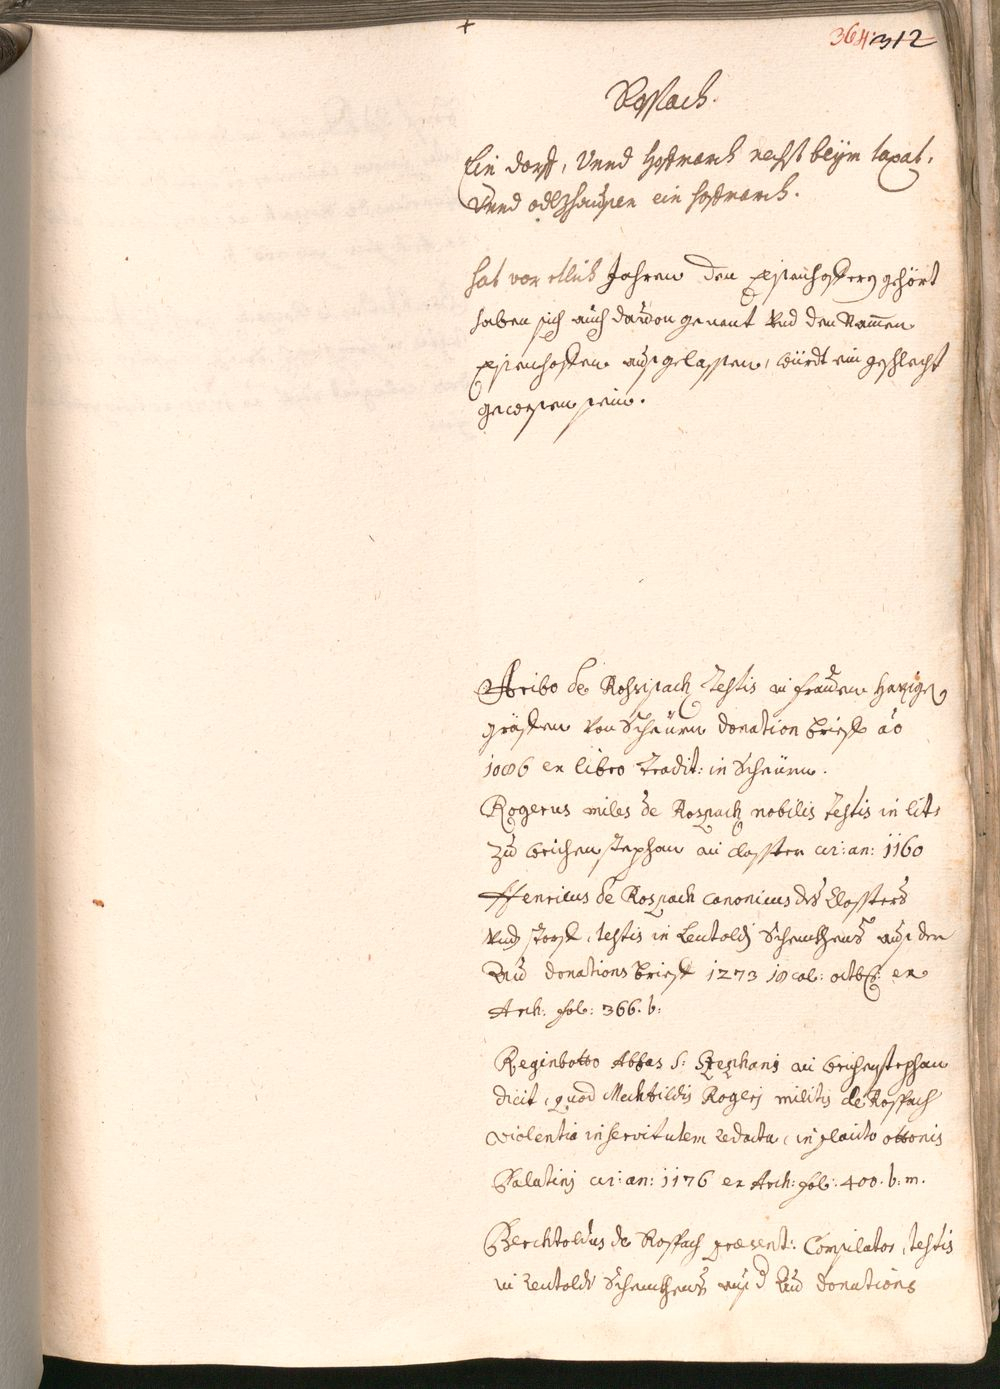 364 312
Rospach.
Ein dorff, Vnnd hofmarch nechst beym taxat,
Vnnd odltzhausen ein hofmarch.
hat vor etlich Jahren den Eisenhoffern gehört
haben sich auch dauon genent vnd den Namen
Eisenhoffen ausgelassen, würdt ein geschlecht
gewesen sein.
Aribo de Rospach testis in frauen Haziga
gräffen von Scheürn donation brieff ao
1086 ex libro tradit: in Scheürn.
Rogerus miles de Rospach nobilis testis in lite
zu weichenstephan im closster cir: an: 1160
Henricus de Rospach canonicus des Clossters
vnd, testis in Leutoldj Schenkhens aus der
Au donations brieff 1273 10 cal: octb: ex
Arch: fol: 366. b:
Reginbotto Abbas S: Stephanj in weichenstephan
dicit, quod Mechtildis Rogerj militis de Rospach
violentia in servitutem redacta, in placito ottonis
Palatinj cir: an: 1176 ex Arch: fol: 400. b: m.
Berchtoldus de Rospach præsent: Compilator, testis
in Leutoldj Schenkhens aus d Au donations